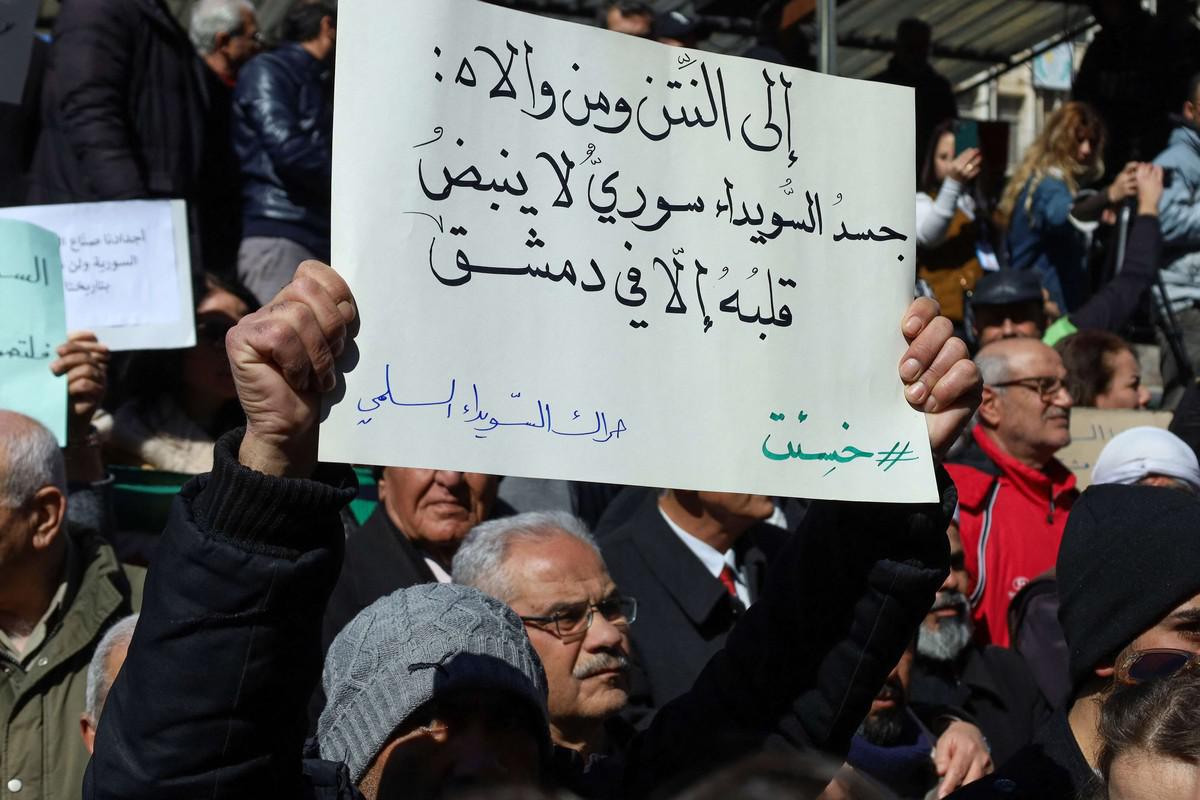 إلى النَّتن ومن والاه:
جسدُ السُّويداء سوريٌّ لا ينبضُ
قلبُهُ إلّا في دمشق
حراك السّويداء السلمي
#خسِئت
أجدادنا صنّاع
السورية ولن
بتاريخنا